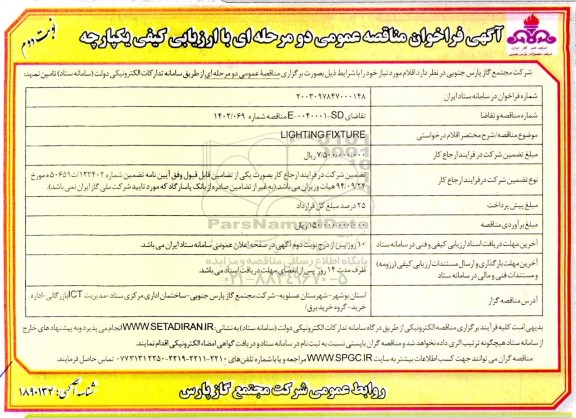 نوبت دوم
آگهی فراخوان مناقصه عمومی دو مرحله ای با ارزیابی کیفی یکپارچه
شرکت مجتمع گاز پارس جنوبی در نظر دارد اقلام مورد نیاز خود را با شرایط ذیل بصورت برگزاری مناقصه عمومی دو مرحله ای از طریق سامانه تدارکات الکترونیکی دولت (سامانه ستاد) تامین نمید:
شماره فراخوان در سامانه ستاد ایران ۲۰۰۳۰۹۷۸۴۷۰۰۰۱۴۸
شماره مناقصه و تقاضا تقاضای E-۰۰۴۰۰۰۱-SD مناقصه شماره ۱۴۰۲/۰۶۹
موضوع مناقصه/شرح مختصر اقلام درخواستی LIGHTING FIXTURE
مبلغ تضمین شرکت در فرایند ارجاع کار ۷/۵۰۰/۰۰۰/۰۰۰ ریال
نوع تضمین شرکت در فرایند ارجاع کار تضمین شرکت در فرایند ارجاع کار بصورت یکی از تضامین قابل قبول وفق آیین نامه تضمین شماره ۱۲۳۴۰۲/ت۵۰۶۵۹ه مورخ
۹۴/۰۹/۲۲ هیات وزیران می باشد. (به غیر از تضامین صادره از بانک پاسارگاد که مورد تایید شرکت ملی گاز ایران نمی باشد).
مبلغ پیش پرداخت ۲۵ درصد مبلغ کل قرارداد
مبلغ برآوردی مناقصه ۱۵۰/۰۰۰/۰۰۰/۰۰۰ ریال
آخرین مهلت دریافت اسناد ارزیابی کیفی و فنی در سامانه ستاد ۱۰ روز پس از درج نوبت دوم آگهی در صفحه اعلان عمومی سامانه ستاد ایران می باشد.
آخرین مهلت بارگذاری و ارسال مستندات ارزیابی کیفی (رزومه)
و مستندات فنی و مالی در سامانه ستاد ظرف مدت ۱۴ روز پس از انقضای مهلت دریافت اسناد می باشد.
آدرس مناقصه گزار استان بوشهر-شهرستان عسلویه-شرکت مجتمع گاز پارس جنوبی-ساختمان اداری مرکزی ستاد-مدیریت ICT بازرگانی-اداره
خرید-گروه خرید برق)
بدیهی است کلیه فرآیند برگزاری مناقصه الکترونیکی از طریق درگاه سامانه تدارکات الکترونیکی دولت (سامانه ستاد) به نشانی: WWW.SETADIRAN.IR انجام می پذیرد و به پیشنهادهای خارج
از سامانه ستاد هیچگونه ترتیب اثری داده نخواهد شد و مناقصه گران بایستی نسبت به ثبت نام در سامانه ستاد و دریافت گواهی امضاء الکترونیکی اقدام نمایند.
مناقصه گران می توانند جهت کسب اطلاعات بیشتر به سایت WWW.SPGC.IR مراجعه و یا با شماره تلفن های ۲۲۱۰-۲۲۱۱-۲۲۱۹-۰۷۷۳۱۳۱۲۲۵۰ تماس حاصل فرمایند.
روابط عمومی شرکت مجتمع گاز پارس
شناسه آگهی: ۱۸۹۰۱۳۴
ParsNamadData
پایگاه اطلاع رسانی مناقصه و مزایده
۰۲۱-۸۸۳۴۹۶۷۰-۵